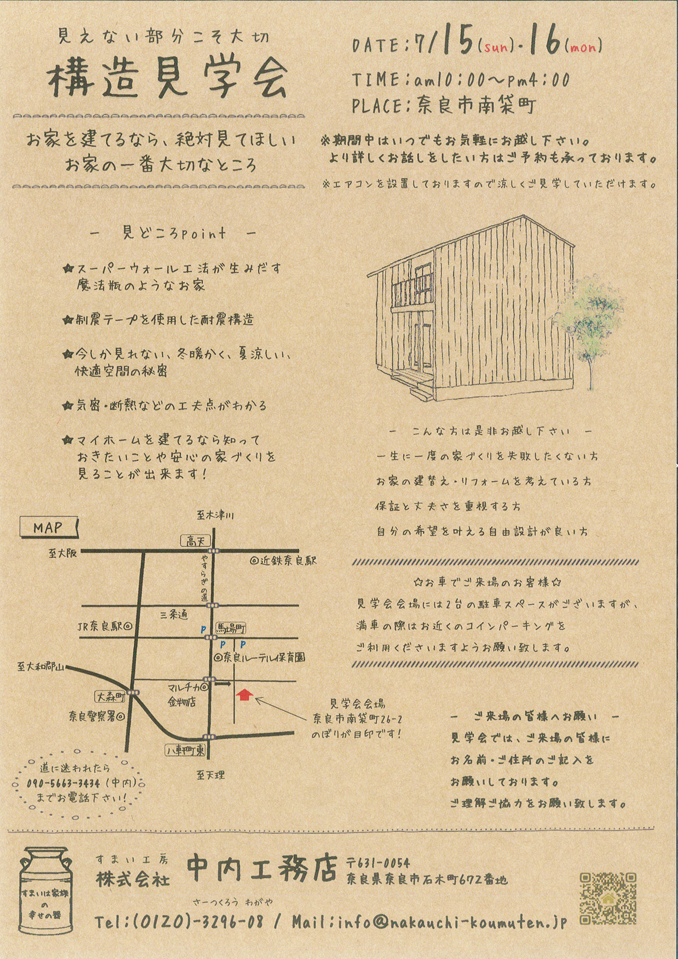 見えない部分こそ大切
構造見学会
お家を建てるなら、絶対見てほしい
お家の一番大切なところ
DATE:7/15(sun)・16(mon)
TIME:am10:00〜pm4:00
PLACE:奈良市南袋町
※期間中はいつでもお気軽にお越し下さい。
より詳しくお話しをしたい方はご予約も承っております。
※エアコンを設置しておりますので涼しくご見学していただけます。
― 見どころpoint ―
★スーパーウォール工法が生みだす
魔法瓶のようなお家
★制震テープを使用した耐震構造
★今しか見れない、冬暖かく、夏涼しい、
快適空間の秘密
★気密・断熱などの工夫点がわかる
★マイホームを建てるなら知って
おきたいことや安心の家づくりを
見ることが出来ます!
― こんな方は是非お越し下さい ―
一生に一度の家づくりを失敗したくない方
お家の建替え・リフォームを考えている方
保証と丈夫さを重視する方
自分の希望を叶える自由設計が良い方
☆お車でご来場のお客様☆
見学会会場には2台の駐車スペースがございますが、
満車の際はお近くのコインパーキングを
ご利用くださいますようお願い致します。
MAP
至木津川
高天
至大阪
近鉄奈良駅
やすらぎの道
三条通
JR奈良駅
馬場町
P
P P
奈良ルーテル保育園
至大和郡山
マルチカ
金物店
大森町
奈良警察署
八軒町東
至天理
見学会会場
奈良市南袋町26-2
のぼりが目印です!
道に迷われたら
090-5663-3434(中内)
までお電話下さい!
― ご来場の皆様へお願い ―
見学会では、ご来場の皆様に
お名前・ご住所のご記入を
お願いしております。
ご理解ご協力をお願い致します。
すまいは家族
の
幸せの器
すまい工房
株式会社 中内工務店
〒631-0054
奈良県奈良市石木町672番地
さーつくろう わがや
Tel:(0120)-3296-08 / Mail:info@nakauchi-koumuten.jp